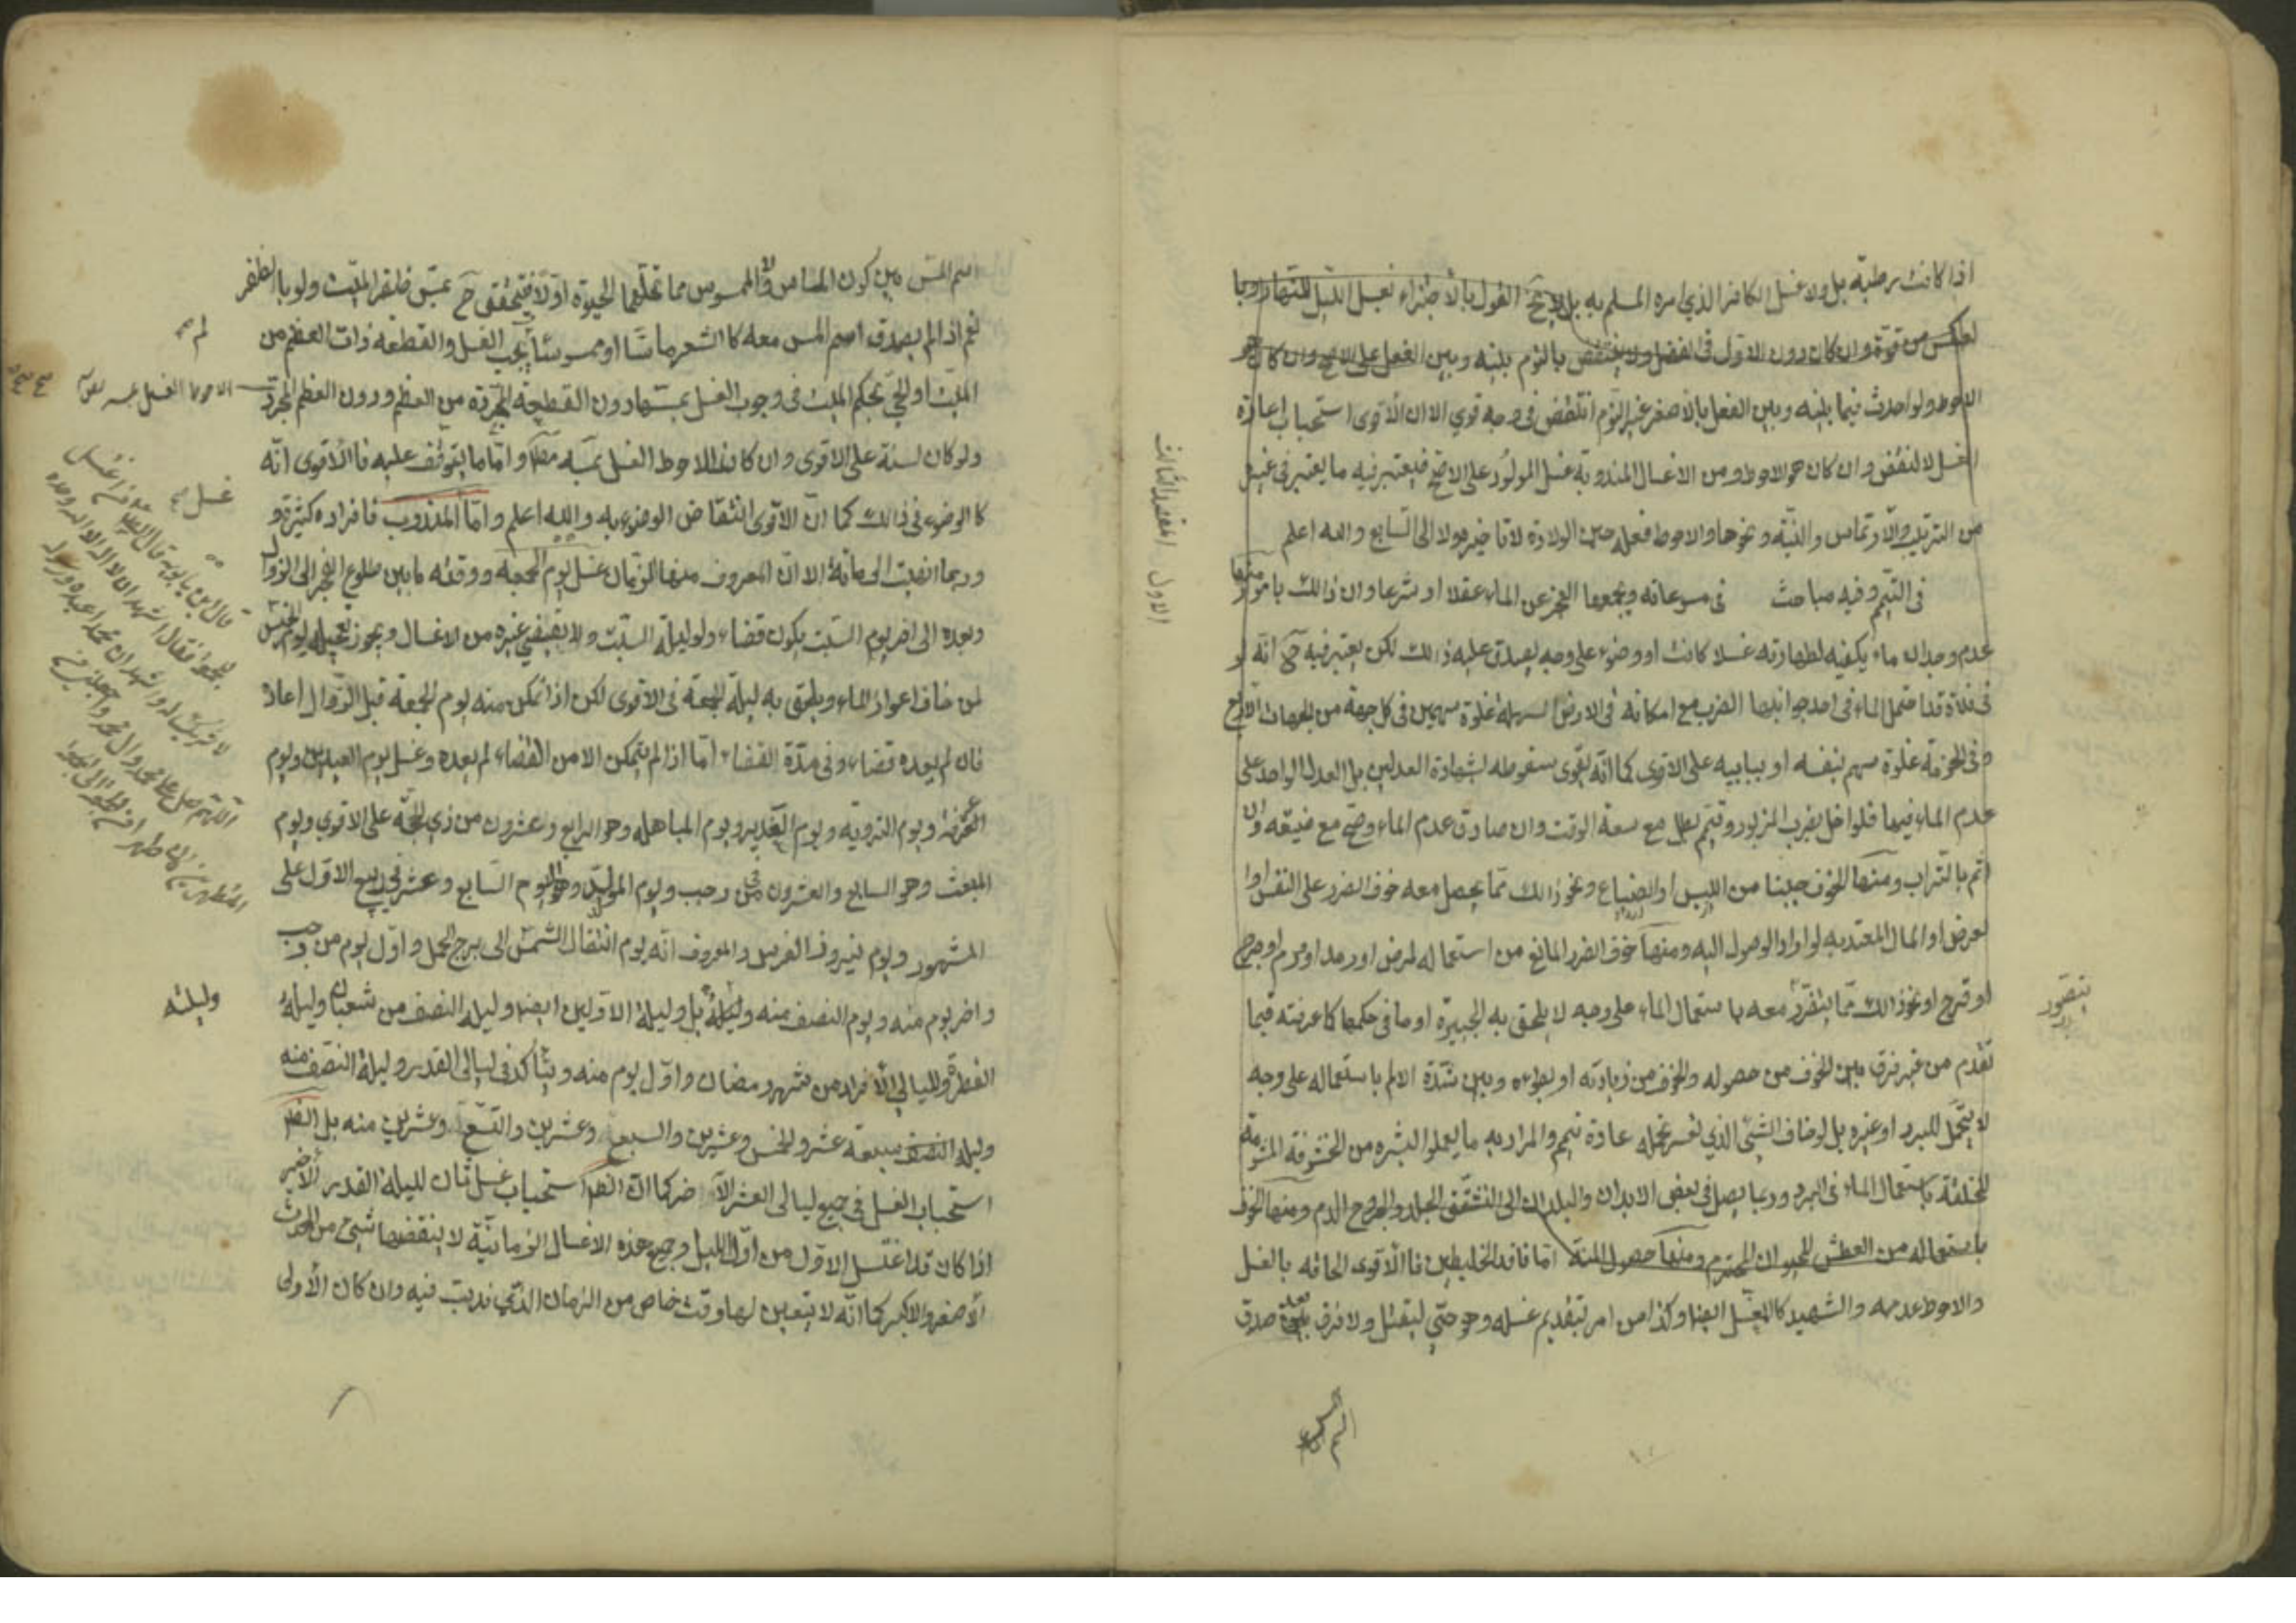 اذا كانت برطبة بل ولا غسل الكافر الذي امره المسلم به بل لا يخ القول بالاجتزاء بغسل الليل للنهار وبا
لعكس من قوة وان كان دون الاول فى الفضل ولا ينتقض بالنوم بينه وبين الفعل على الاصح وان كان هو
الاحوط ولو احدث فيما بينه وبين الفعل بالاصغر غير النوم انتقض فى وجه قوي الا ان الاقوى استحباب اعادة
الغسل لا لنقض وان كان هو الاحوط ومن الاغسال المندوبة غسل المولود على الاصح فيعتبر فيه ما يعتبر فى غيره
من الترتيب والارتماس والنية ونحوها والاحوط فعله حين الولادة لا تاخيره ولا الى السابع والله اعلم
المقصد الثالث
الاول
فى التيمم وفيه مباحث فى مسوغاته ويجمعها العجز عن الماء عقلا او شرعا وان ذالك بامور منها
عدم وجدان ماء يكفيه لطهارته غسلا كانت او وضوء على وجه يصدق عليه ذالك لكن يعتبر فيه ح انه لو
فى فلاة قد احتمل الماء فى احد جوانبها الضرب مع امكانه فى الارض السهلة غلوة سهمين فى كل جهة من الجهات الاربع
وفى الحزنة غلوة سهم بنفسه او بنايبه على الاقوى كما انه يقوى سقوطه بشهادة العدلين بل العدل الواحد على
عدم الماء فيها فلو اخل بضرب المزبور وتيمم بطل مع سعة الوقت وان صادق عدم الماء وصح مع ضيقه وان
اثم بالتراب ومنها الخوف جبنا من اللص او الضياع ونحو ذالك مما يحصل معه خوف الضرر على النفس او ا
لعرض او المال المعتد به لو اراد الوصول اليه ومنها خوف الضرر المانع من استعماله لمرض او رمد او ورم او جرح
او قرح او نحو ذالك مما يتضرر معه باستعمال الماء على وجه لا يلحق به الجبيرة او ما فى حكمها كما عرفته فيما
يتصور
تقدم من غير فرق بين الخوف من حصوله والخوف من زيادته او بطوءه وبين شدة الالم باستعماله على وجه
لا يتحمل للبرد او غيره بل لو خاف الشين الذي تعسر تحمله عادة تيمم والمراد به ما يعلو البشره من الخشونة المشوهة
للخلقة باستعمال الماء فى البرد وربما يصل فى بعض الابدان والبلدان الى التشقق الجلد والخروج الدم ومنها الخوف
باستعماله من العطش للحيوان المحترم ومنها حصول المنة اما فاقد الخليطين فالاقوى الحاقه بالغسل
والاحوط عدمه والشهيد كالمغسل ايضا وكذا من امر بتقديم غسله وهو حتى ليقتل ولا فرق بعد صدق
اسم المس بين كون الماس والممسوس مما تحله الحيوة او لا فيتحقق ح بمس ظفر الميت ولو بالظفر
نعم اذا لم يصدق اسم المس معه كالشعر ماسا او ممسوسا لم يجب الغسل والقطعة ذات العظم من
الميت او الحي بحكم الميت فى وجوب الغسل بمسها دون القطعة المجردة من العظم ودون العظم المجرد
ولو كان لسنة على الاقوى وان كان الاحوط الغسل بمسه مطلقا واما ما يتوقف عليه فالاقوى انه
غسل
كالوضوء فى ذالك كما ان الاقوى انتقاض الوضوء به والله اعلم واما المندوب فافراده كثيرة و
وربما انهيت الى مائة الا ان المعروف منها الزمان غسل يوم الجمعة ووقته ما بين طلوع الفجر الى الزوال
وبعده الى اخر يوم السبت يكون قضاء ولو ليلة السبت ولا يقضي غيره من الاغسال ويجوز تعجيله يوم الخميس
لمن خاف اعواز الماء ويلحق به ليلة الجمعة فى الاقوى لكن اذا تمكن منه يوم الجمعة قبل الزوال اعاد
فان لم يعده قضاء وفى مدة القضاء اما اذا لم يتمكن الا من القضاء لم يعده وغسل يوم العيدين ويوم
العرفة ويوم التروية ويوم الغدير ويوم المباهله وهو الرابع وعشرون من ذي الحجة على الاقوى ويوم
المبعث وهو السابع والعشرون من رجب ويوم المولد وهو اليوم السابع وعشر فى ربيع الاول على
المشهور ويوم نيروز الفرس والمعروف انه يوم انتقال الشمس الى برج الحمل واول يوم من رجب
واخر يوم منه ويوم النصف منه وليلته بل وليلة الاولين ايضا وليله النصف من شعبان وليلة
وليلته
الفطر وليالي الافراد من شهر رمضان واول يوم منه ويتاكد فى ليالى القدر وليلة النصف منه
وليلة النصف سبعة عشر والخمس وعشرين والسبع وعشرين والتسع وعشرين منه بل الظ
استحباب الغسل فى جميع ليالى العشر الاخر كما ان الظ استحباب غسل ثان لليلة القدر الاخير
اذا كان قد اغتسل الاول من اول الليل وجميع هذه الاغسال الزمانية لا ينقضها شيئ من الحدث
الاصغر والاكبر كما انه لا يتعين لها وقت خاص من الزمان الذي ندبت فيه وان كان الاولى